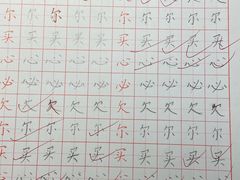 尔尔尔尔尔尔尔尔尔尔
买买买买买买买买买买
心心心心心心心心心心
必必必必必必必必必必
欠欠欠欠欠欠欠欠欠欠
尔尔尔尔尔尔尔尔尔尔
买买买买买买买买买买